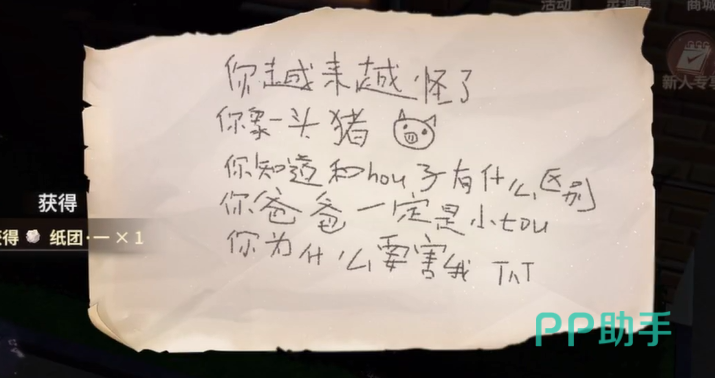 活动
商城
新人专享
你越来越怪了
你象一头猪
你知道和hou子有什么区别
你爸爸一定是小tou
你为什么要害我 TAT
获得
获得 纸团·一 × 1
PP助手